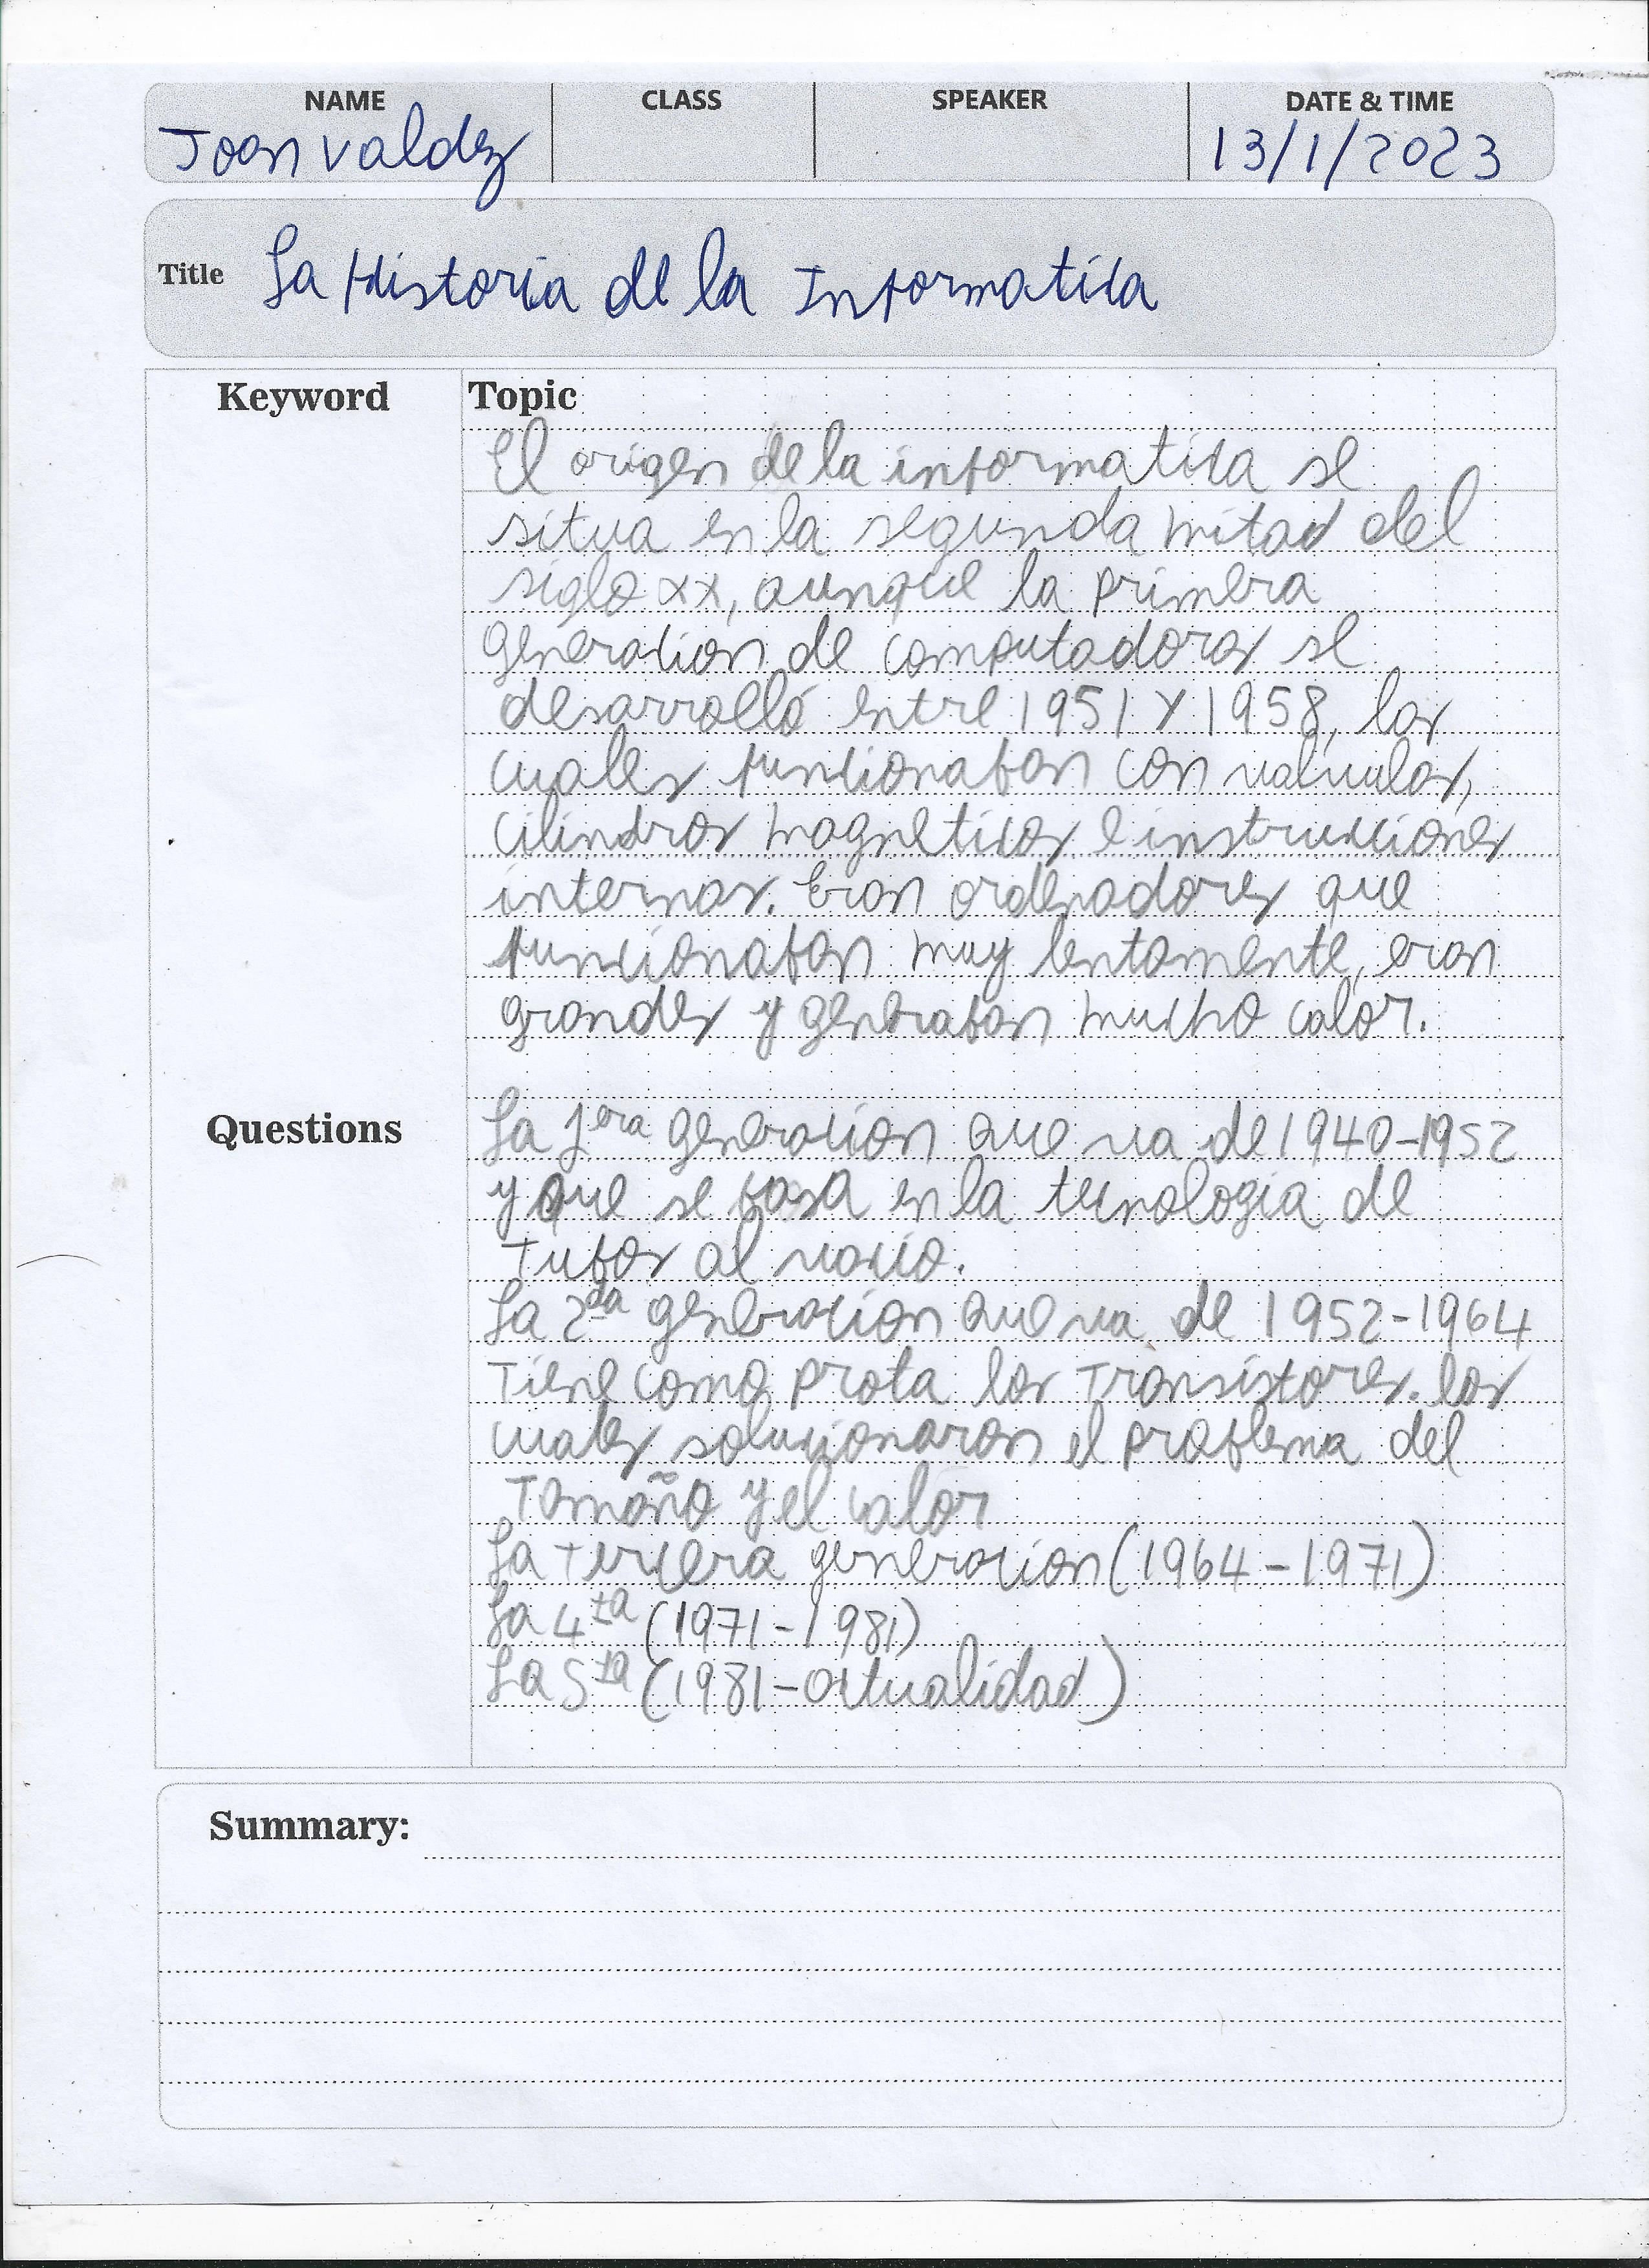 NAME CLASS SPEAKER DATE & TIME
Joan Valdez 13/1/2023
Title La Historia de la Informatica
Keyword Topic
El origen de la informatica se
situa en la segunda mitad del
siglo xx, aunque la primera
generacion de computadoras se
desarrolló entre 1951 y 1958, las
cuales funcionaban con valvulas,
cilindros magneticos e instrucciones
internas. Eran ordenadores que
funcionaban muy lentamente, eran
grandes y generaban mucho calor.
Questions La 1era generacion que va de 1940-1952
y que se basa en la tecnologia de
Tubos al vacio.
La 2da generacion que va de 1952-1964
Tiene como prota los Transistores. los
cuales solucionaron el problema del
Tamaño y el calor
La tercera generacion (1964-1971)
La 4ta (1971-1981)
La 5ta (1981-actualidad)
Summary: